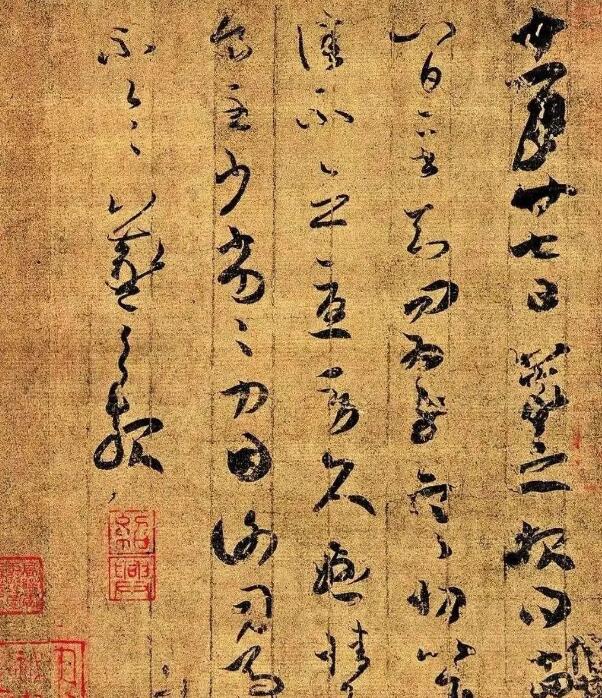 十一月廿七日羲之報得十四
八日二書知問為慰寒切比各
佳不念憂勞久懸情
食至少劣劣力因謝司馬
不一一羲之報
紹興